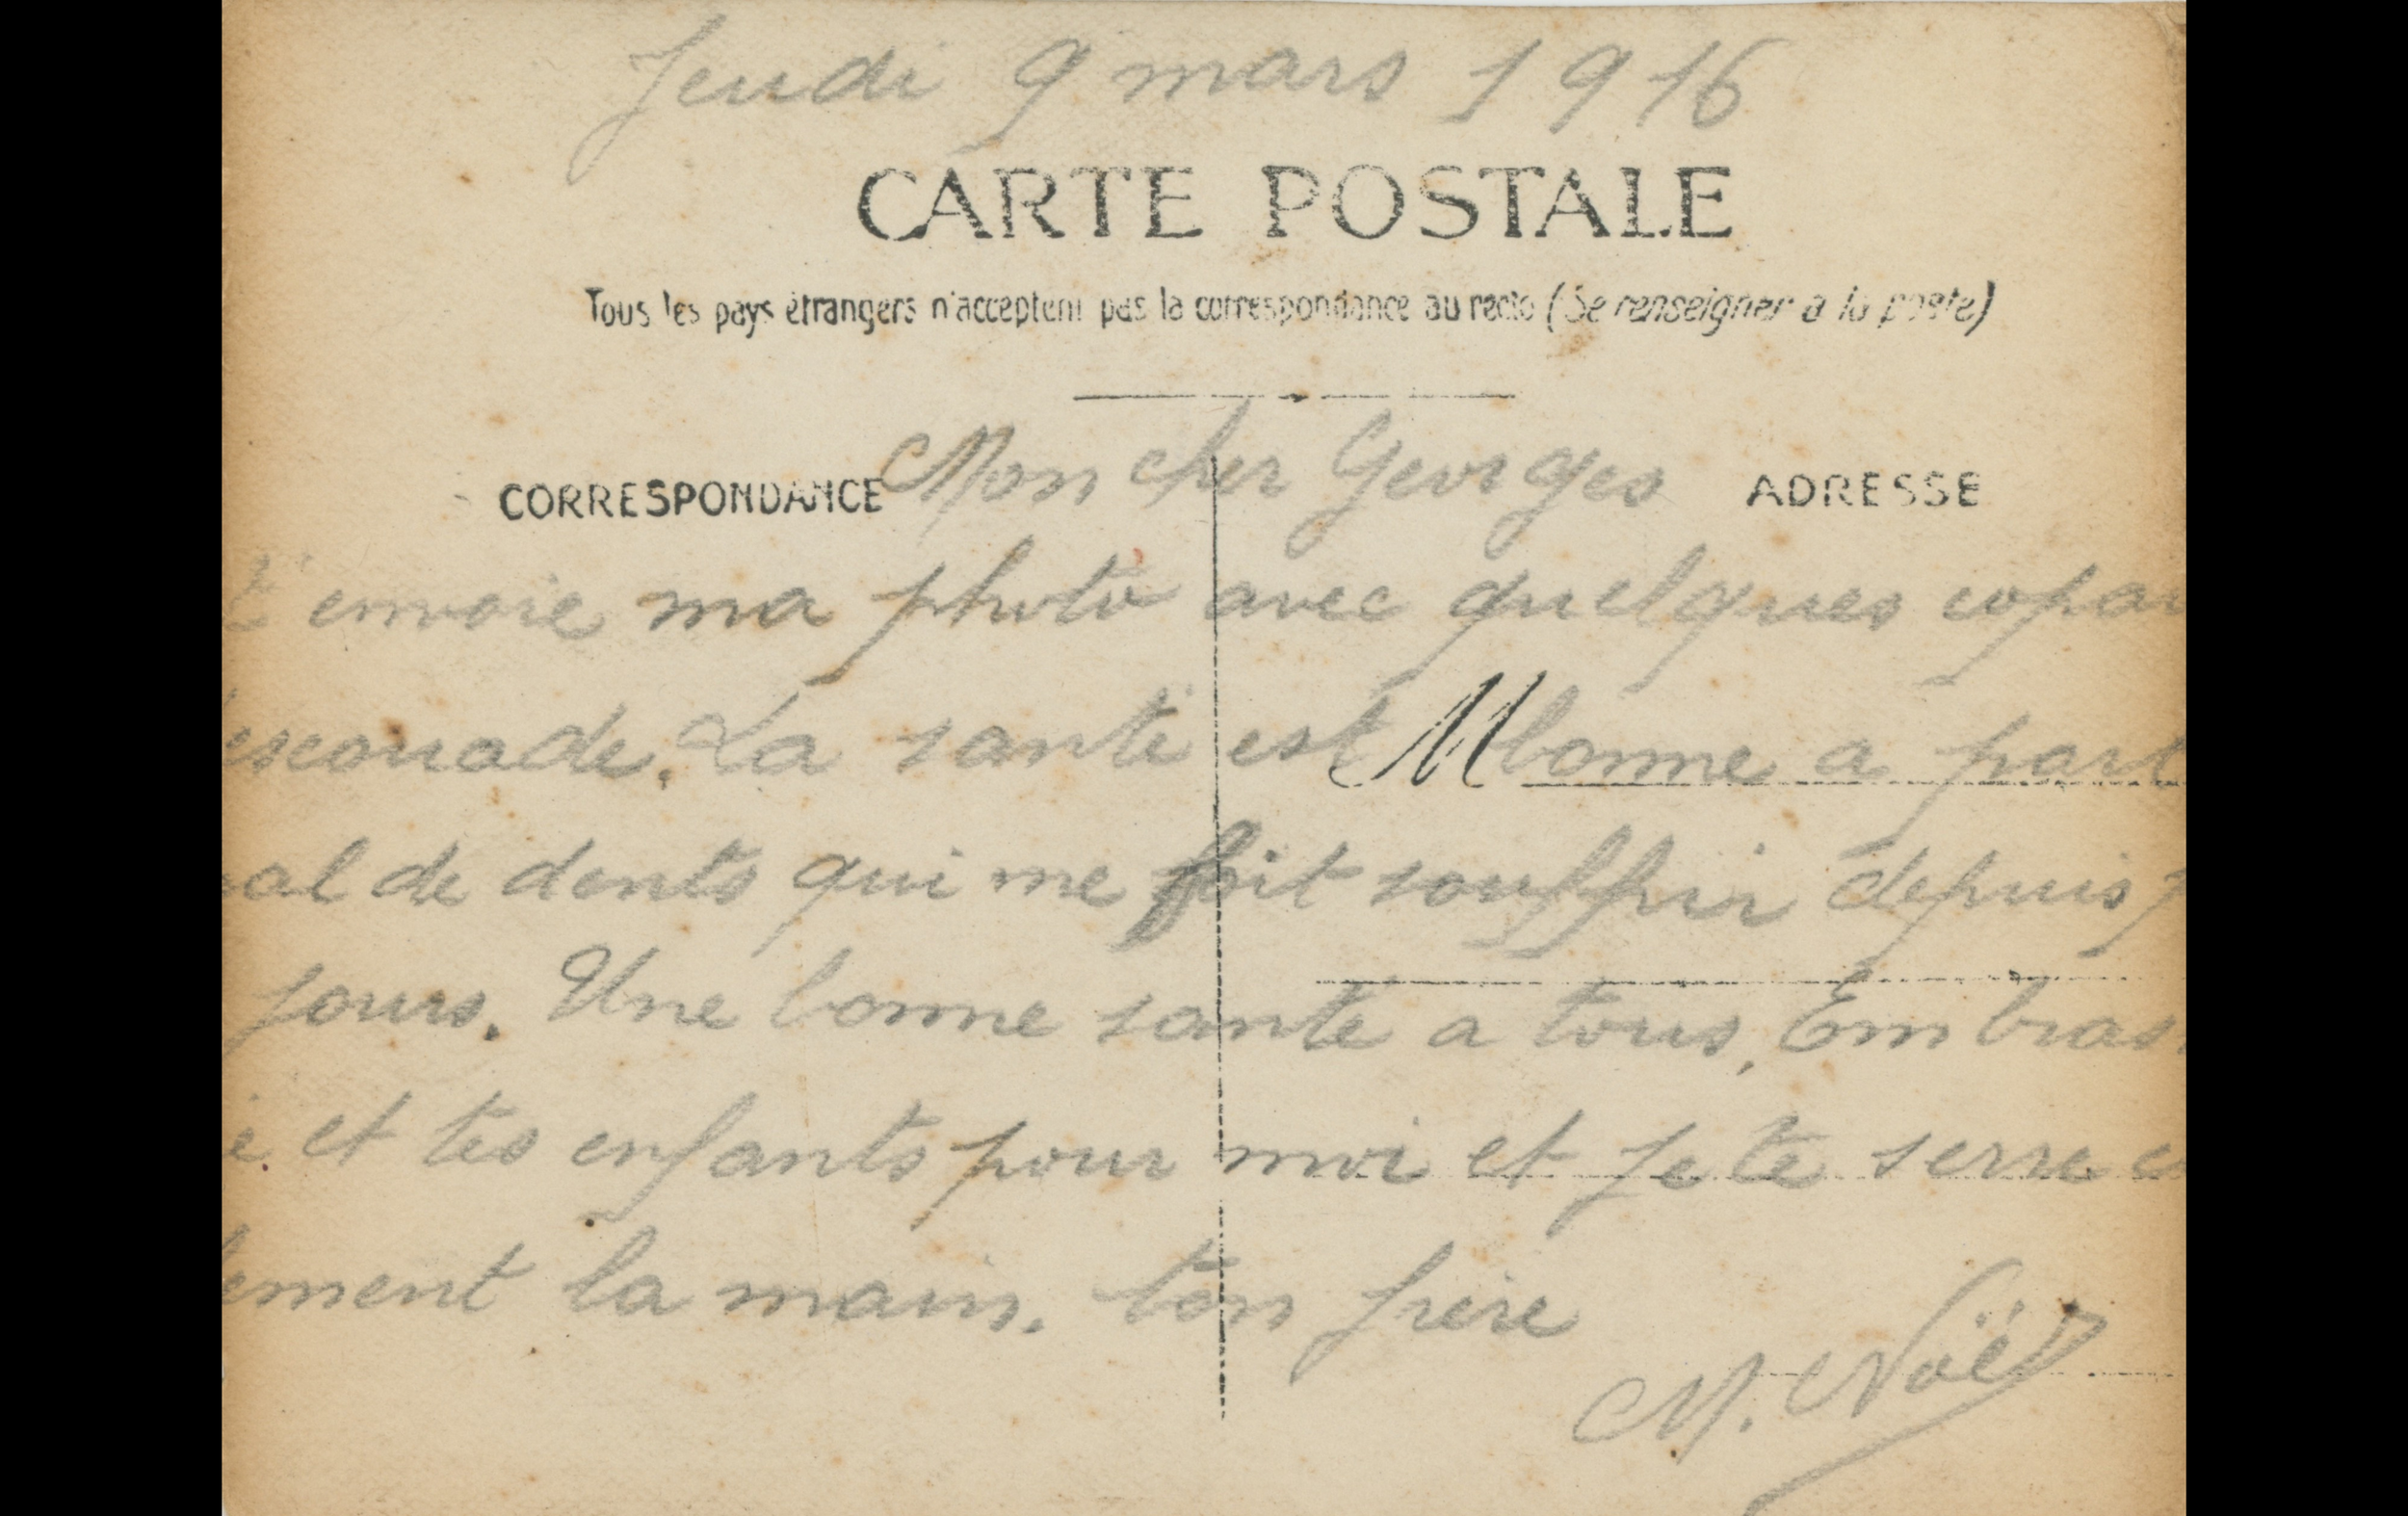 Jeudi 9 mars 1916
CARTE POSTALE
Tous les pays étrangers n'acceptent pas la correspondance au recto (Se renseigner à la poste)
CORRESPONDANCE Mon cher Georges ADRESSE
t'envoie ma photo avec quelques copai
escouade. La santé est bonne a part
al de dents qui me fait souffrir depuis
jours. Une bonne sante a tous, Embras
e et tes enfants pour moi et je te serre c
lement la main. ton frère
M
M. Noël